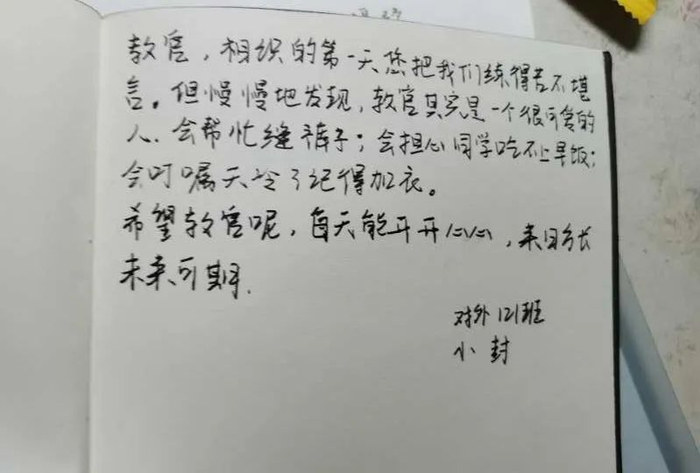 教官，相织的第一天您把我们练得苦不堪
言。但慢慢地发现，教官其实是一个很可爱的
人、会帮忙缝裤子；会担心同学吃不上早饭；
会叮嘱天冷了记得加衣。
希望教官呢，每天能开开心心，来日方长
未来可期.
对外121班
小封